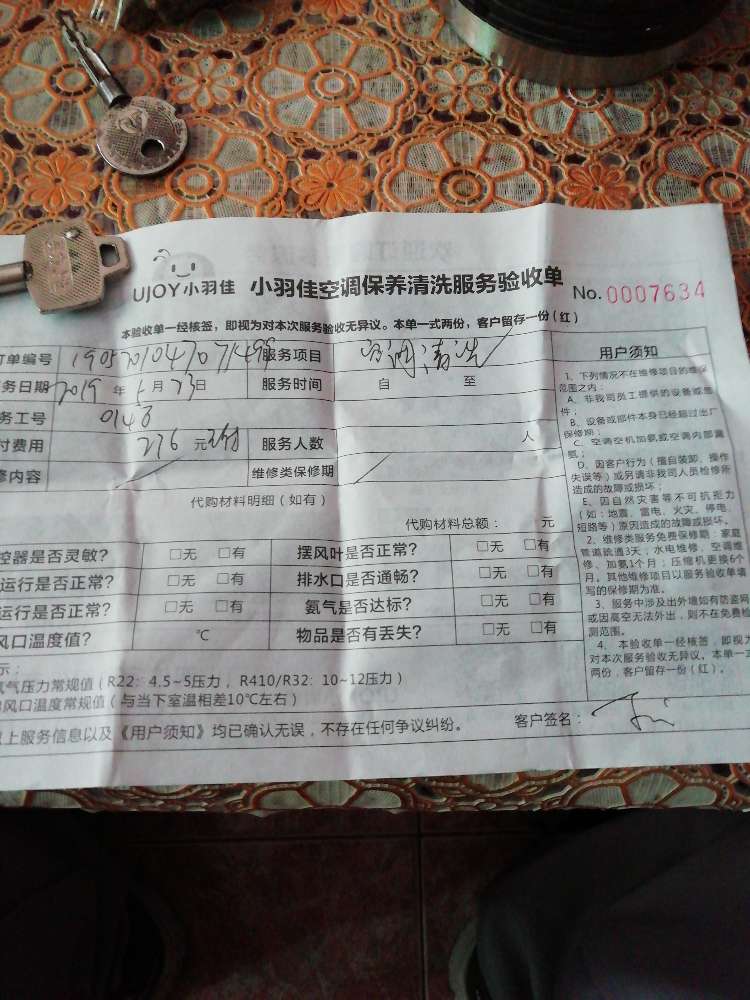 UJOY小羽佳 小羽佳空调保养清洗服务验收单 No. 0007634
本验收单一经核签，即视为对本次服务验收无异议。本单一式两份，客户留存一份（红）
订单编号 服务项目 空调清洗
务日期 2019 年 6 月 23 日 服务时间 自 至
务工号 0148
付费用 276 元 服务人数 人
修内容 维修类保修期
代购材料明细（如有）
代购材料总额： 元
控器是否灵敏？ □无 □有 摆风叶是否正常？ □无 □有
运行是否正常？ □无 □有 排水口是否通畅？ □无 □有
运行是否正常？ □无 □有 氨气是否达标？ □无 □有
风口温度值？ ℃ 物品是否有丢失？ □无 □有
示：
气压力常规值（R22：4.5~5压力，R410/R32：10~12压力）
风口温度常规值（与当下室温相差10℃左右）
上服务信息以及《用户须知》均已确认无误，不存在任何争议纠纷。 客户签名：
用户须知
1、下列情况不在维修项目的维保
范围之内：
A、非我司员工提供的设备或部
件；
B、设备或部件本身已经超过出厂
保修期；
C、空调空机加氨或空调内部漏
氨；
D、因客户行为（擅自装卸、操作
失误等）或另请非我司人员检修所
造成的故障或损坏；
E、因自然灾害等不可抗拒力
（如：地震、雷电、火灾、停电、
短路等）原因造成的故障或损坏。
2、维修类服务免费保修期：家庭
管道疏通3天；水电维修、空调维
修、加氨1个月；压缩机更换6个
月。其他维修项目以服务验收单填
写的保修期为准。
3、服务中涉及出外墙如有防盗网
或因高空无法外出，则不在免费检
测范围。
4、本验收单一经核签，即视为
对本次服务验收无异议。本单一式
两份，客户留存一份（红）。